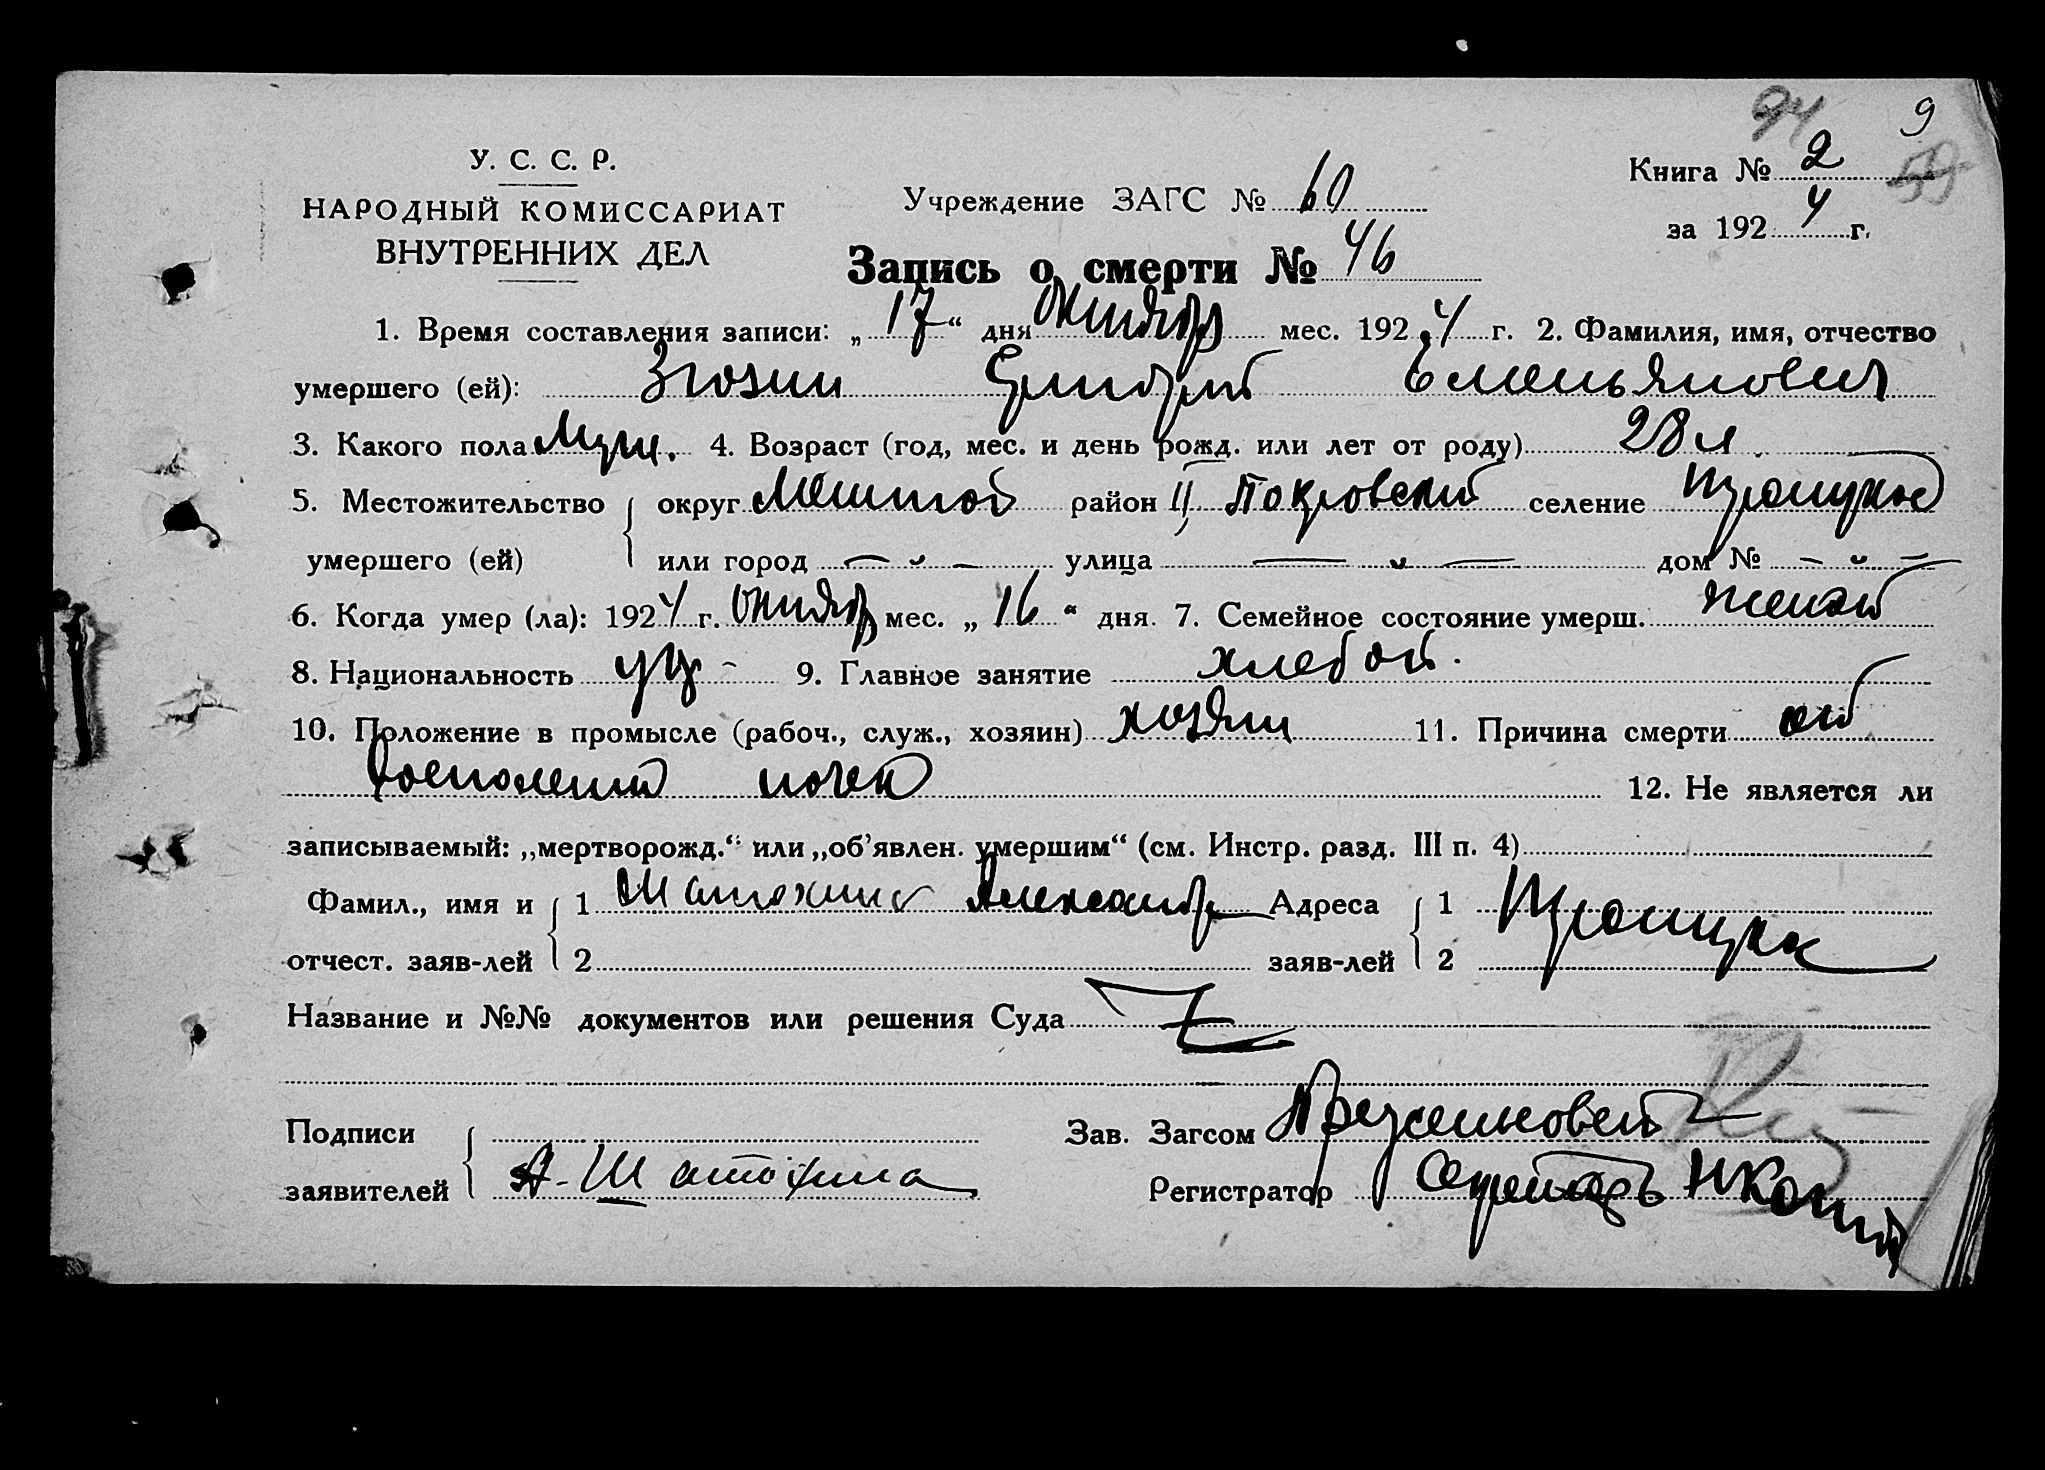 94 9
У. С. С. Р.
Книга № 2 59
НАРОДНЫЙ КОМИССАРИАТ
Учреждение ЗАГС № 60
за 1924 г.
ВНУТРЕННИХ ДЕЛ
Запись о смерти № 46
1. Время составления записи: „17“ дня октября мес. 1924 г. 2. Фамилия, имя, отчество
умершего (ей): Григорий Емельянович
3. Какого пола Муж. 4. Возраст (год, мес. и день рожд. или лет от роду) 28 л
5. Местожительство округ район II Покровский селение
умершего (ей) или город — " — улица — " — дом № — " —
6. Когда умер (ла): 1924 г. октября мес. „16“ дня. 7. Семейное состояние умерш. женат
8. Национальность укр 9. Главное занятие хлебоп.
10. Положение в промысле (рабоч., служ., хозяин) хозяин 11. Причина смерти от
воспаления почек 12. Не является ли
записываемый: „мертворожд.“ или „об'явлен. умершим“ (см. Инстр. разд. III п. 4)
Фамил., имя и 1 Шатохина Александр Адреса 1 Троицкая
отчест. заяв-лей 2 заяв-лей 2
Название и №№ документов или решения Суда
Подписи Зав. Загсом
заявителей А. Шатохина Регистратор Секретарь